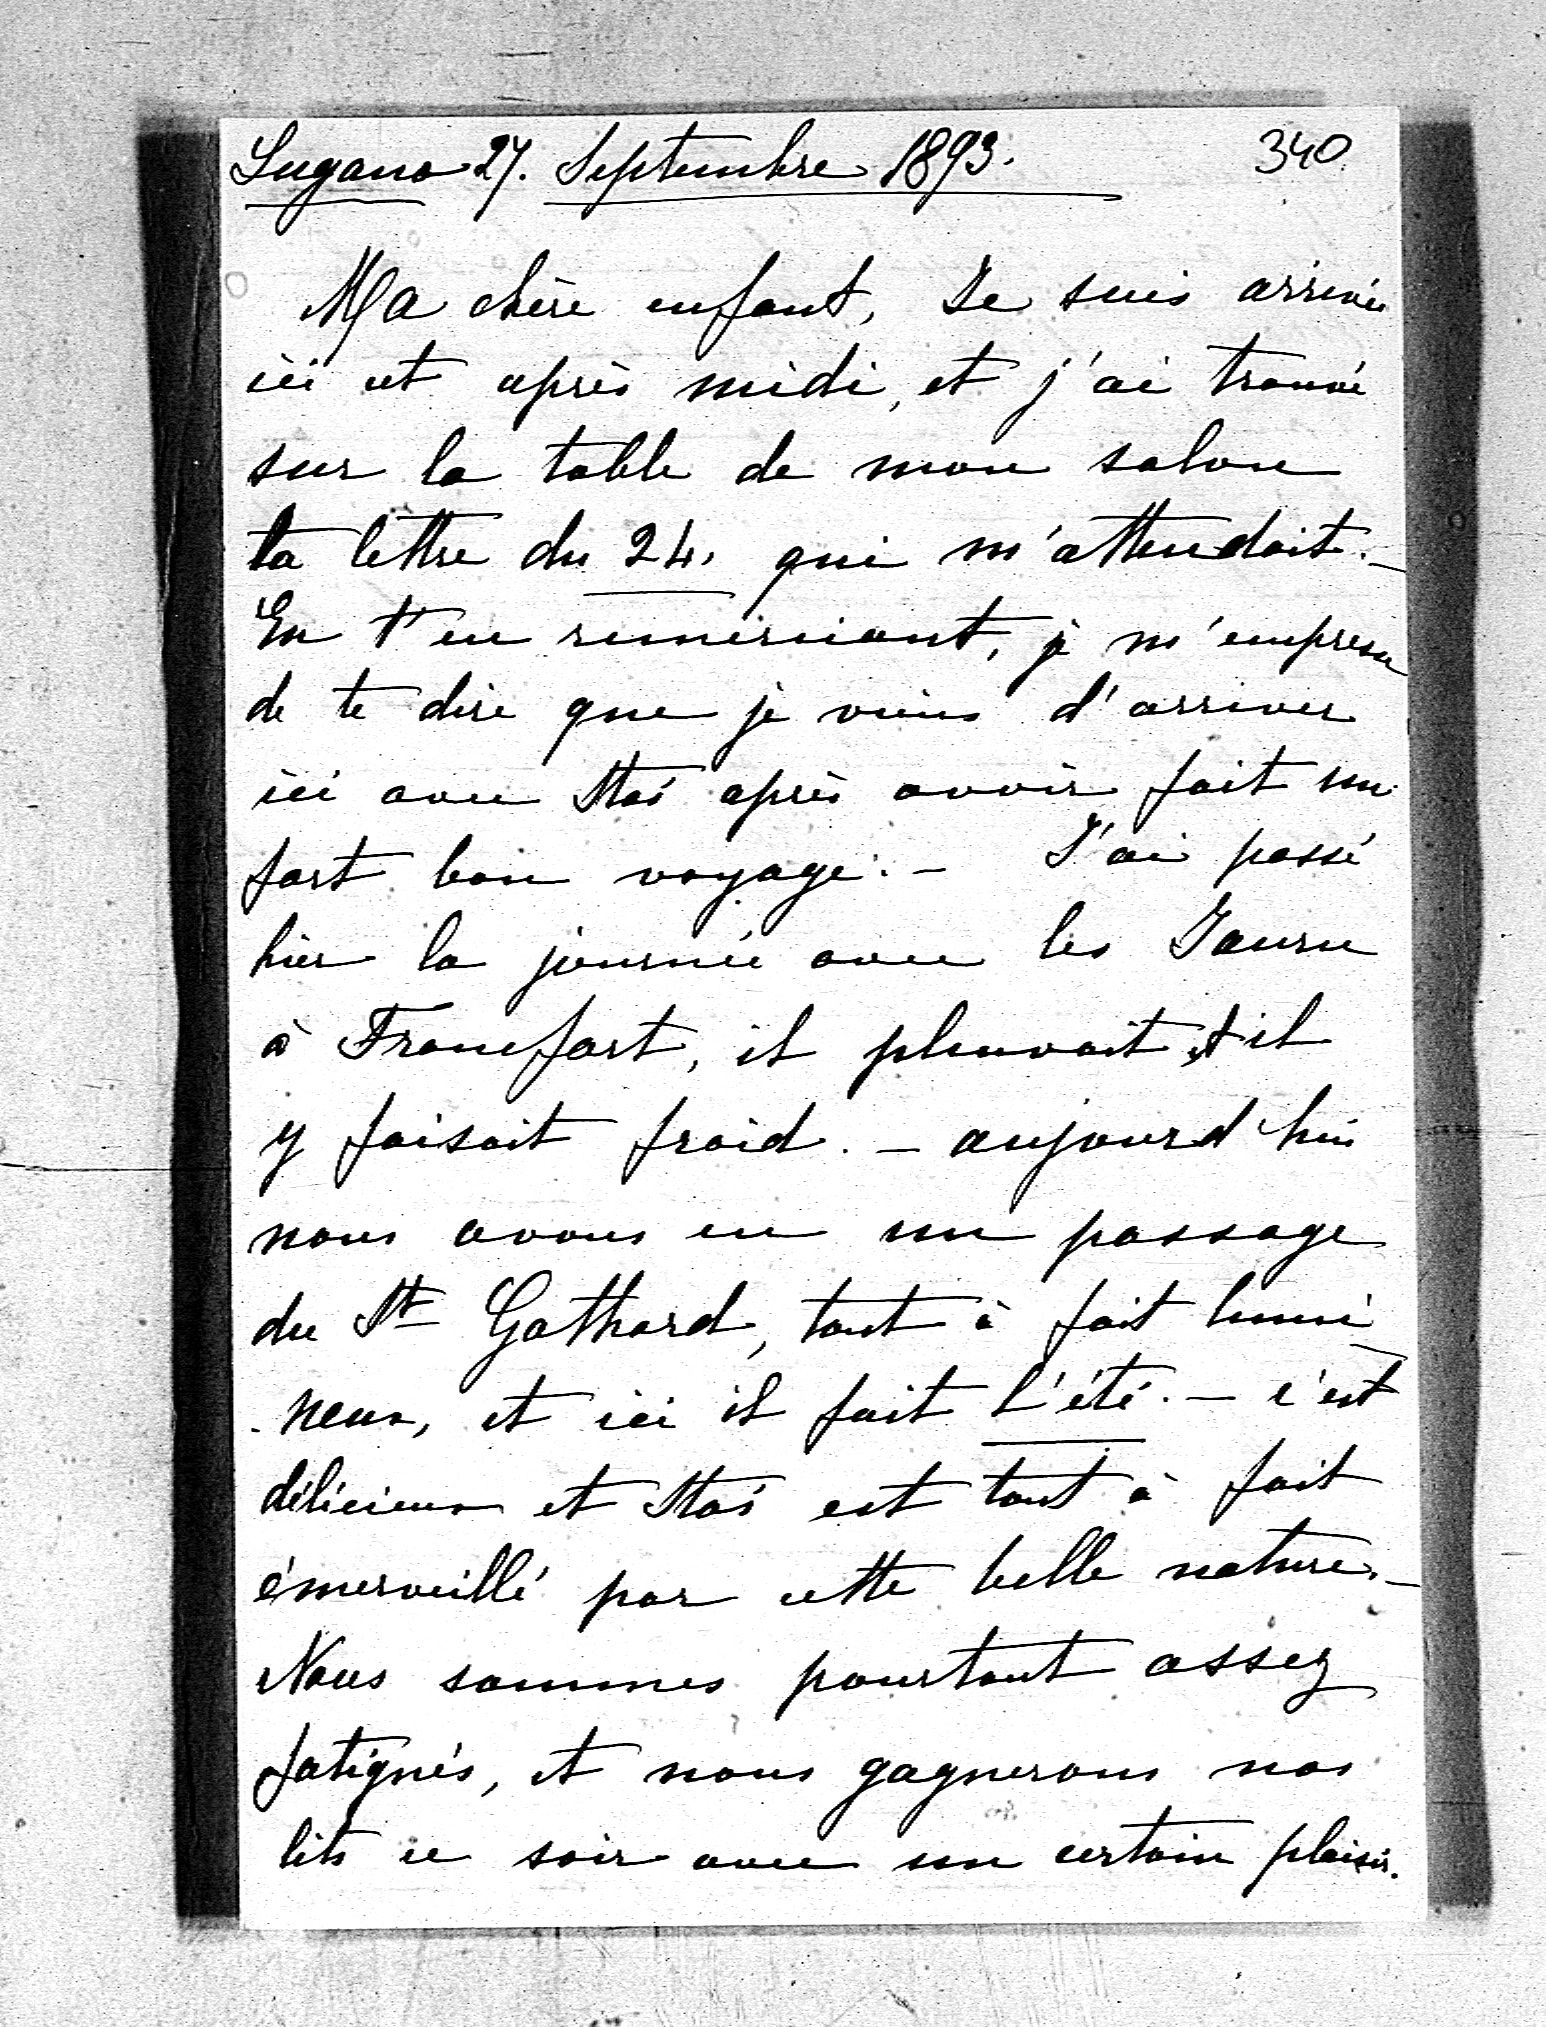 Lugano 27. Septembre 1893. 340.
Ma chère enfant, Je suis arrivée
ici cet après midi, et j'ai trouvé
sur la table de mon salon
ta lettre du 24, qui m'attendait. —
En t'en remerciant, je m'empresse
de te dire que je viens d'arriver
ici avec Stas après avoir fait un
fort bon voyage. — J'ai passé
hier la journée avec les
à Francfort, il pleuvait et il
y faisait froid. — aujourd'hui
nous avons eu un passage
du St Gothard, tout à fait lumi
-neux, et ici il fait l'été. — c'est
délicieux et Stas est tout à fait
émerveillé par cette belle nature. —
Nous sommes pourtant assez
fatignés, et nous gagnerons nos
lits ce soir avec un certain plaisir.